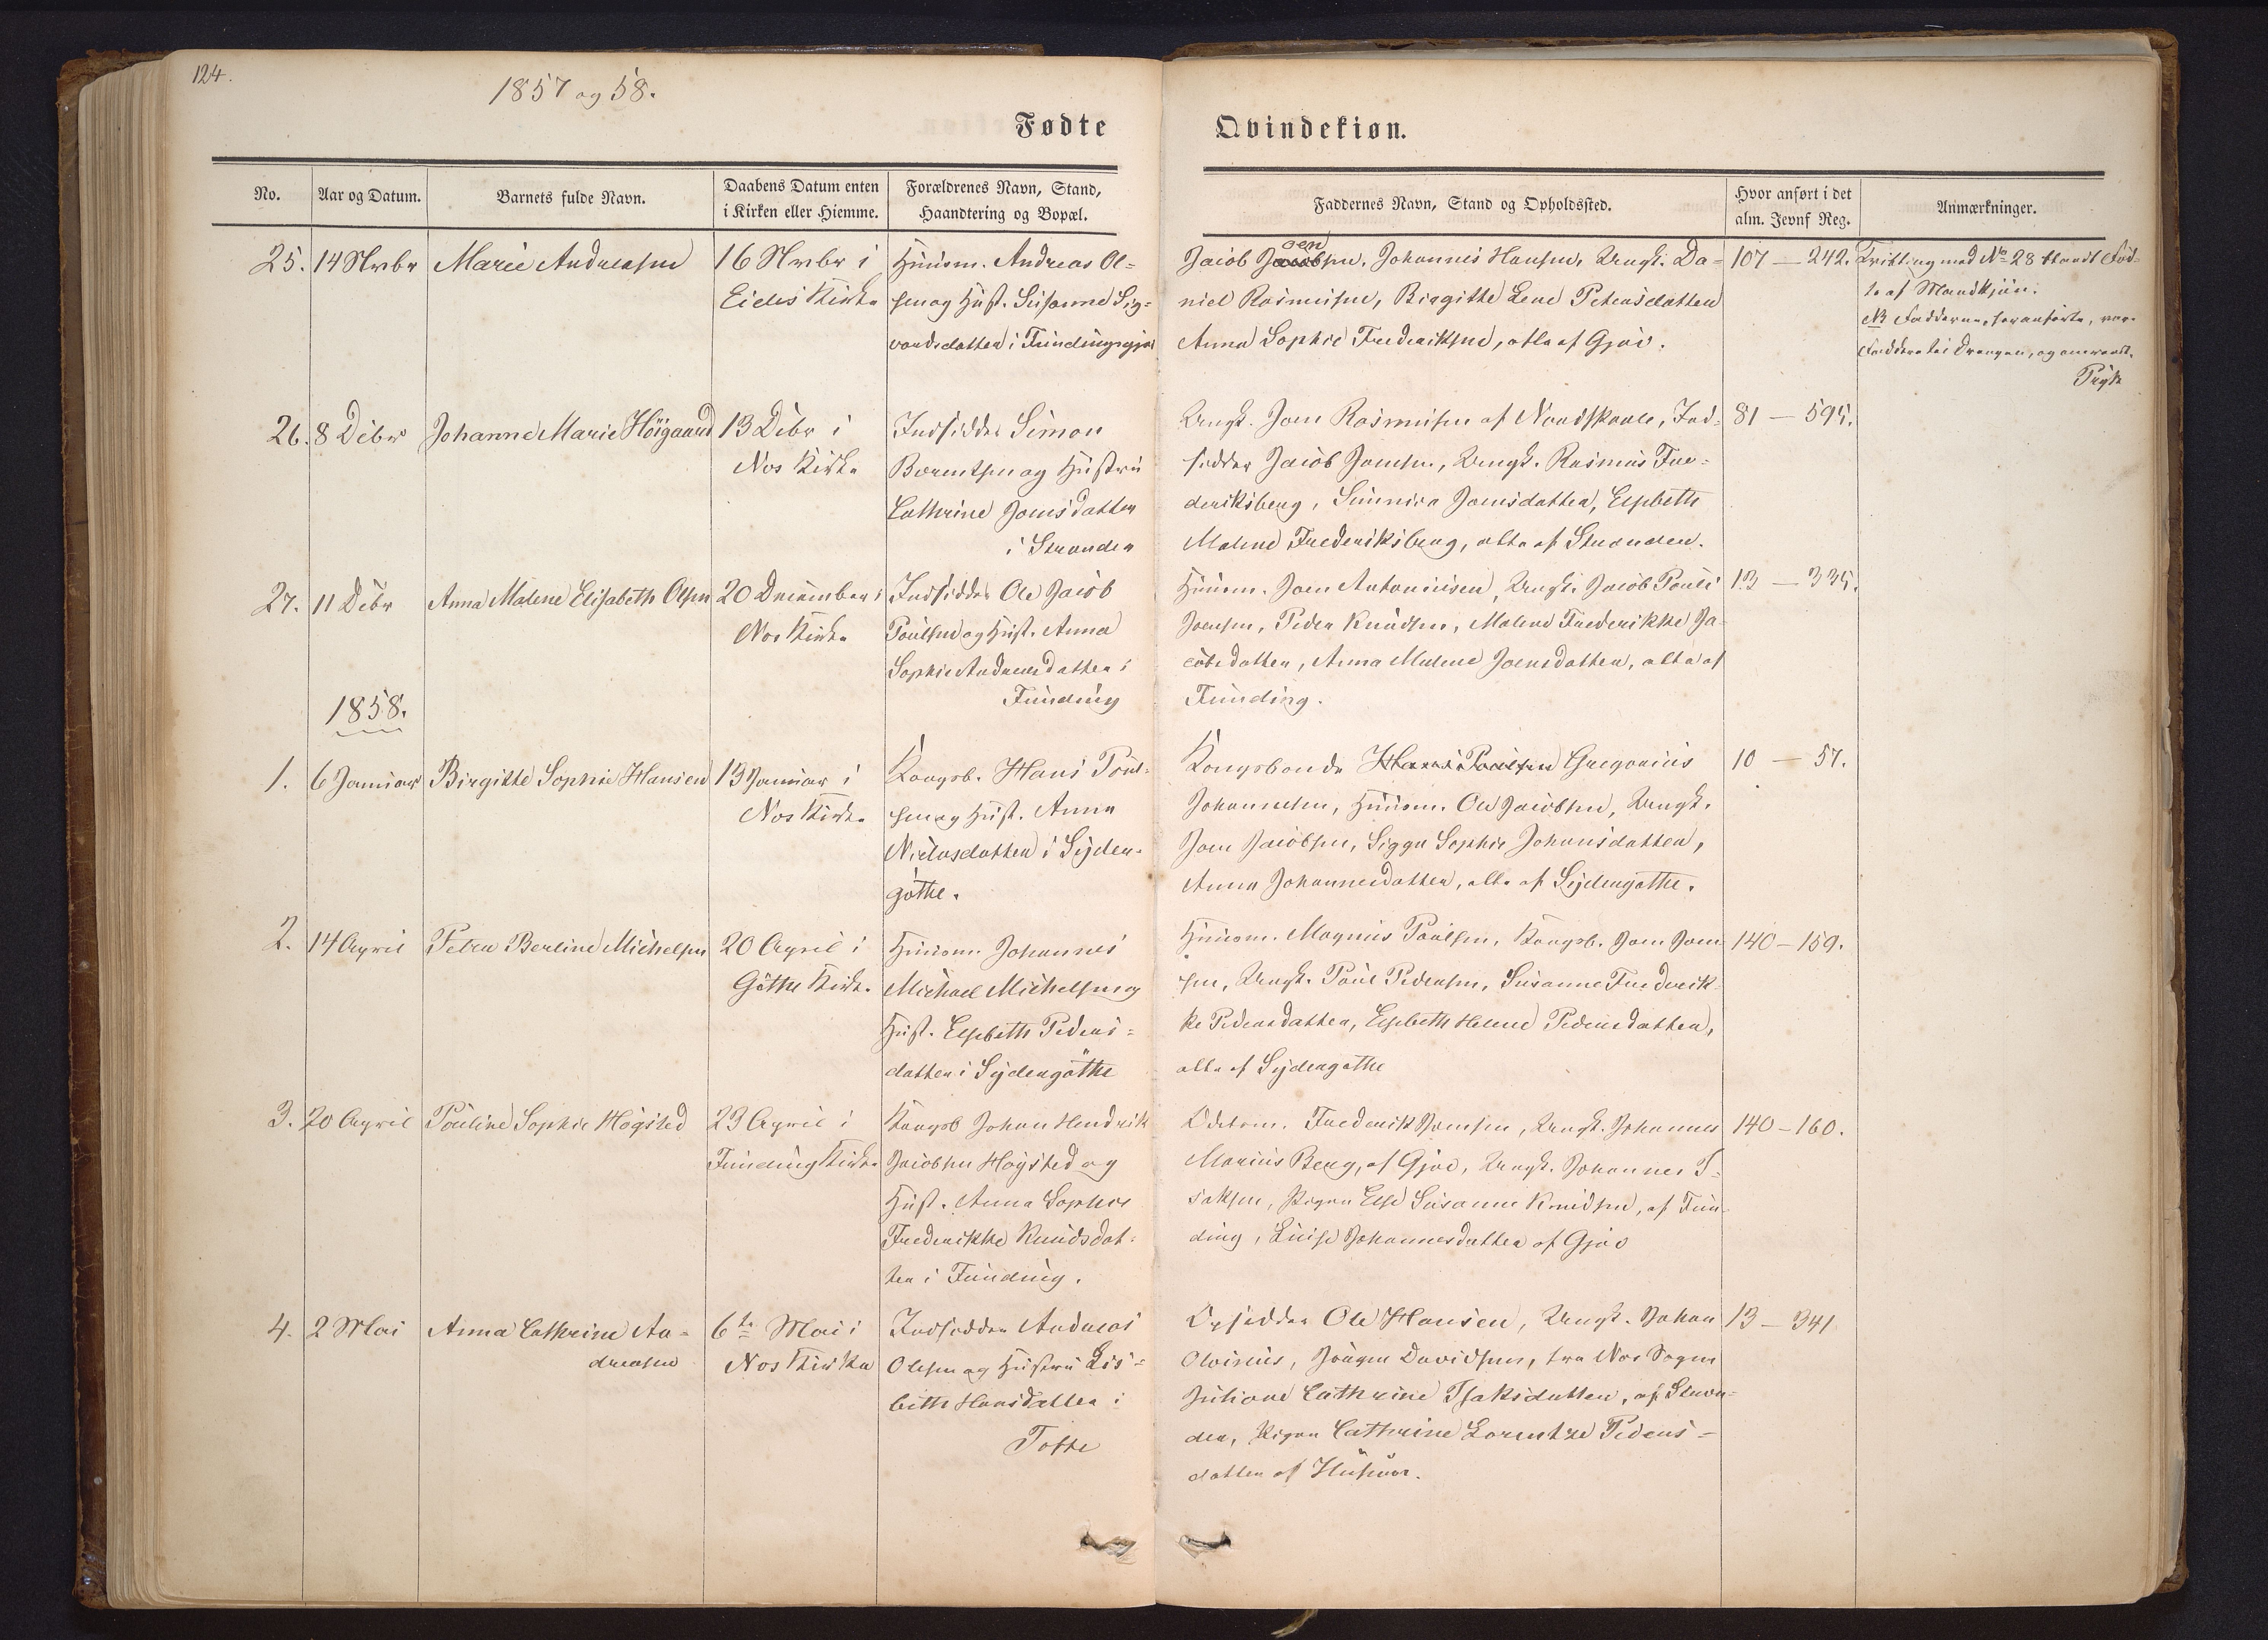 124.
1857 og 58.
Fødte
Qvindekiøn.
No.
Aar og Datum.
Barnets fulde Navn.
Daabens Datum enten
i Kirken eller Hiemme.
Forældrenes Navn, Stand,
Haandtering og Bopæl.
Faddernes Navn, Stand og Opholdssted.
Hvor anført i det
alm. Jevnf Reg.
Anmærkninger.
25.
14 Nvbr
Marie Andreasen
16 Nvbr i
Eides Kirke
Huusm. Andreas Ol=
sen og Hust. Susanne Sig=
vardsdatter i Fundingsgjov
Jacob Joensen, Johannes Hansen, Ungk. Da=
niel Rasmusen, Birgitte Lene Petersdatter
Anna Sophie Frederiksen, alle af Gjov.
107 — 242.
Tvilling med No 28 blandt Föd-
te af Mandkjön.
NB Fadderne, foranförte, var
Faddere til Drengen, og omvendt.
26.
8 Decbr
Johanne Marie Höigaard
13 Decbr i
Nes Kirke
Indsidder Simon
Barentsen og Hustru
Cathrine Joensdatter
i Stranden
Ungk. Joen Rasmusen af Nordskaale, Ind-
sidder Jacob Joensen, Ungk. Rasmus Fre=
deriksberg, Sunneva Joensdatter, Elsbeth
Malene Frederiksberg, alle af Stranden.
81 — 595.
27.
11 Decbr
Anna Malene Elisabeth Olsen
20 December i
Nes Kirke
Indsidder Ole Jacob
Poulsen og Hust. Anna
Sophie Andreasdatter i
Funding
Huusm. Joen Antoniusen, Ungk. Jacob Pouli
Joensen, Peder Knudsen, Malene Frederikke Ja
cobsdatter, Anna Malene Joensdatter, alle af
Funding.
13 — 335.
1858.
1.
6 Januar
Birgitte Sophie Hansen
13 Januar i
Nes Kirke
Kongsb. Hans Poul-
sen og Hust. Anna
Niclasdatter i Syder-
göthe.
Kongsbonde Hans Poulsen Gregorius
Johannesen, Huusm. Ole Jacobsen, Ungk.
Joen Jacobsen, Sigga Sophie Johansdatter,
Anna Johannesdatter, alle af Sydergöthe.
10 — 57.
2.
14 April
Petra Berline Michelsen
20 April i
Göthe Kirke.
Huusm. Johannes
Michael Michelsen og
Hust. Elsebeth Peders=
datter i Sydergöthe
Huusm. Magnus Poulsen, Kongsb. Joen Joen
sen, Ungk. Poul Pedersen, Susanne Frederik
ke Pedersdatter, Elsebeth Helene Pedersdatter,
alle af Sydergöthe
140 — 159.
3.
20 April
Pouline Sophie Högsted
23 April i
Funding Kirke
Kongsb Johan Hendrik
Jacobsen Högsted og
Hust. Anna Sophie
Frederikke Knudsdat-
ter i Funding.
Odelsm. Frederik Joensen, Ungk. Johannes
Marius Berg, af Gjov, Ungk. Johannes I-
saksen, Pigen Else Susanne Knudsen, af Fun-
ding, Luise Johannesdatter af Gjov
140 — 160.
4.
2 Mai
Anna Cathrine An=
dreasen
6te Mai i
Nes Kirke
Indsidder Andreas
Olesen og Hustru Lis=
beth Hansdatter i
Tofte
Opsidder Ole Hansen, Ungk. Johan
Olvirius, Joagen Davidsen, fra Nes Sogn
Juliane Cathrine Isaksdatter, af Stran-
den, Pigen Cathrine Lorentze Peders=
datter af Husum.
13 — 341